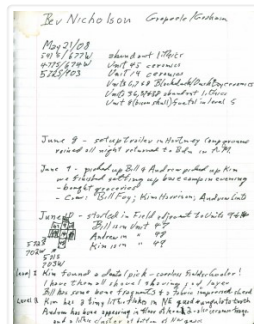 Bev Nicholson
May 21/08
541S/677W abundant lithics
477S/674W Unit 45 ceramics
522S/703 Unit 14 ceramics
Units 6,7&8 Blackduck/Duck Bay ceramics
Units 36,37&38 abundant lithics
Unit 8 (burnshell) fontal in level 5
June 8 - set up trailer in Hartney Campground
rained all night returned to Bdn in P.M.
June 9 - picked up Bill & Andrew picked up Kim
we finished setting up base camp in evening
- bought groceries
- Crew: Bill Foy, Kim Harrison, Andrew Lints
June 10 - started in Field adjacent to Units 7&8
Bill in Unit 47
Andrew in " 48
Kim in " 49
522S
702W
521S
703W
level 2 Kim found a dental pick - careless Fielder Crowder!
I have them all shovel shaving 10cm layer
Bill has some bone fragments & a fabric impressed sherd
Level 3 Kim has 3 tiny lithic flakes in NE quad
Andrew has bone appearing in three of
and a lithic cluster at bottom of NW quad